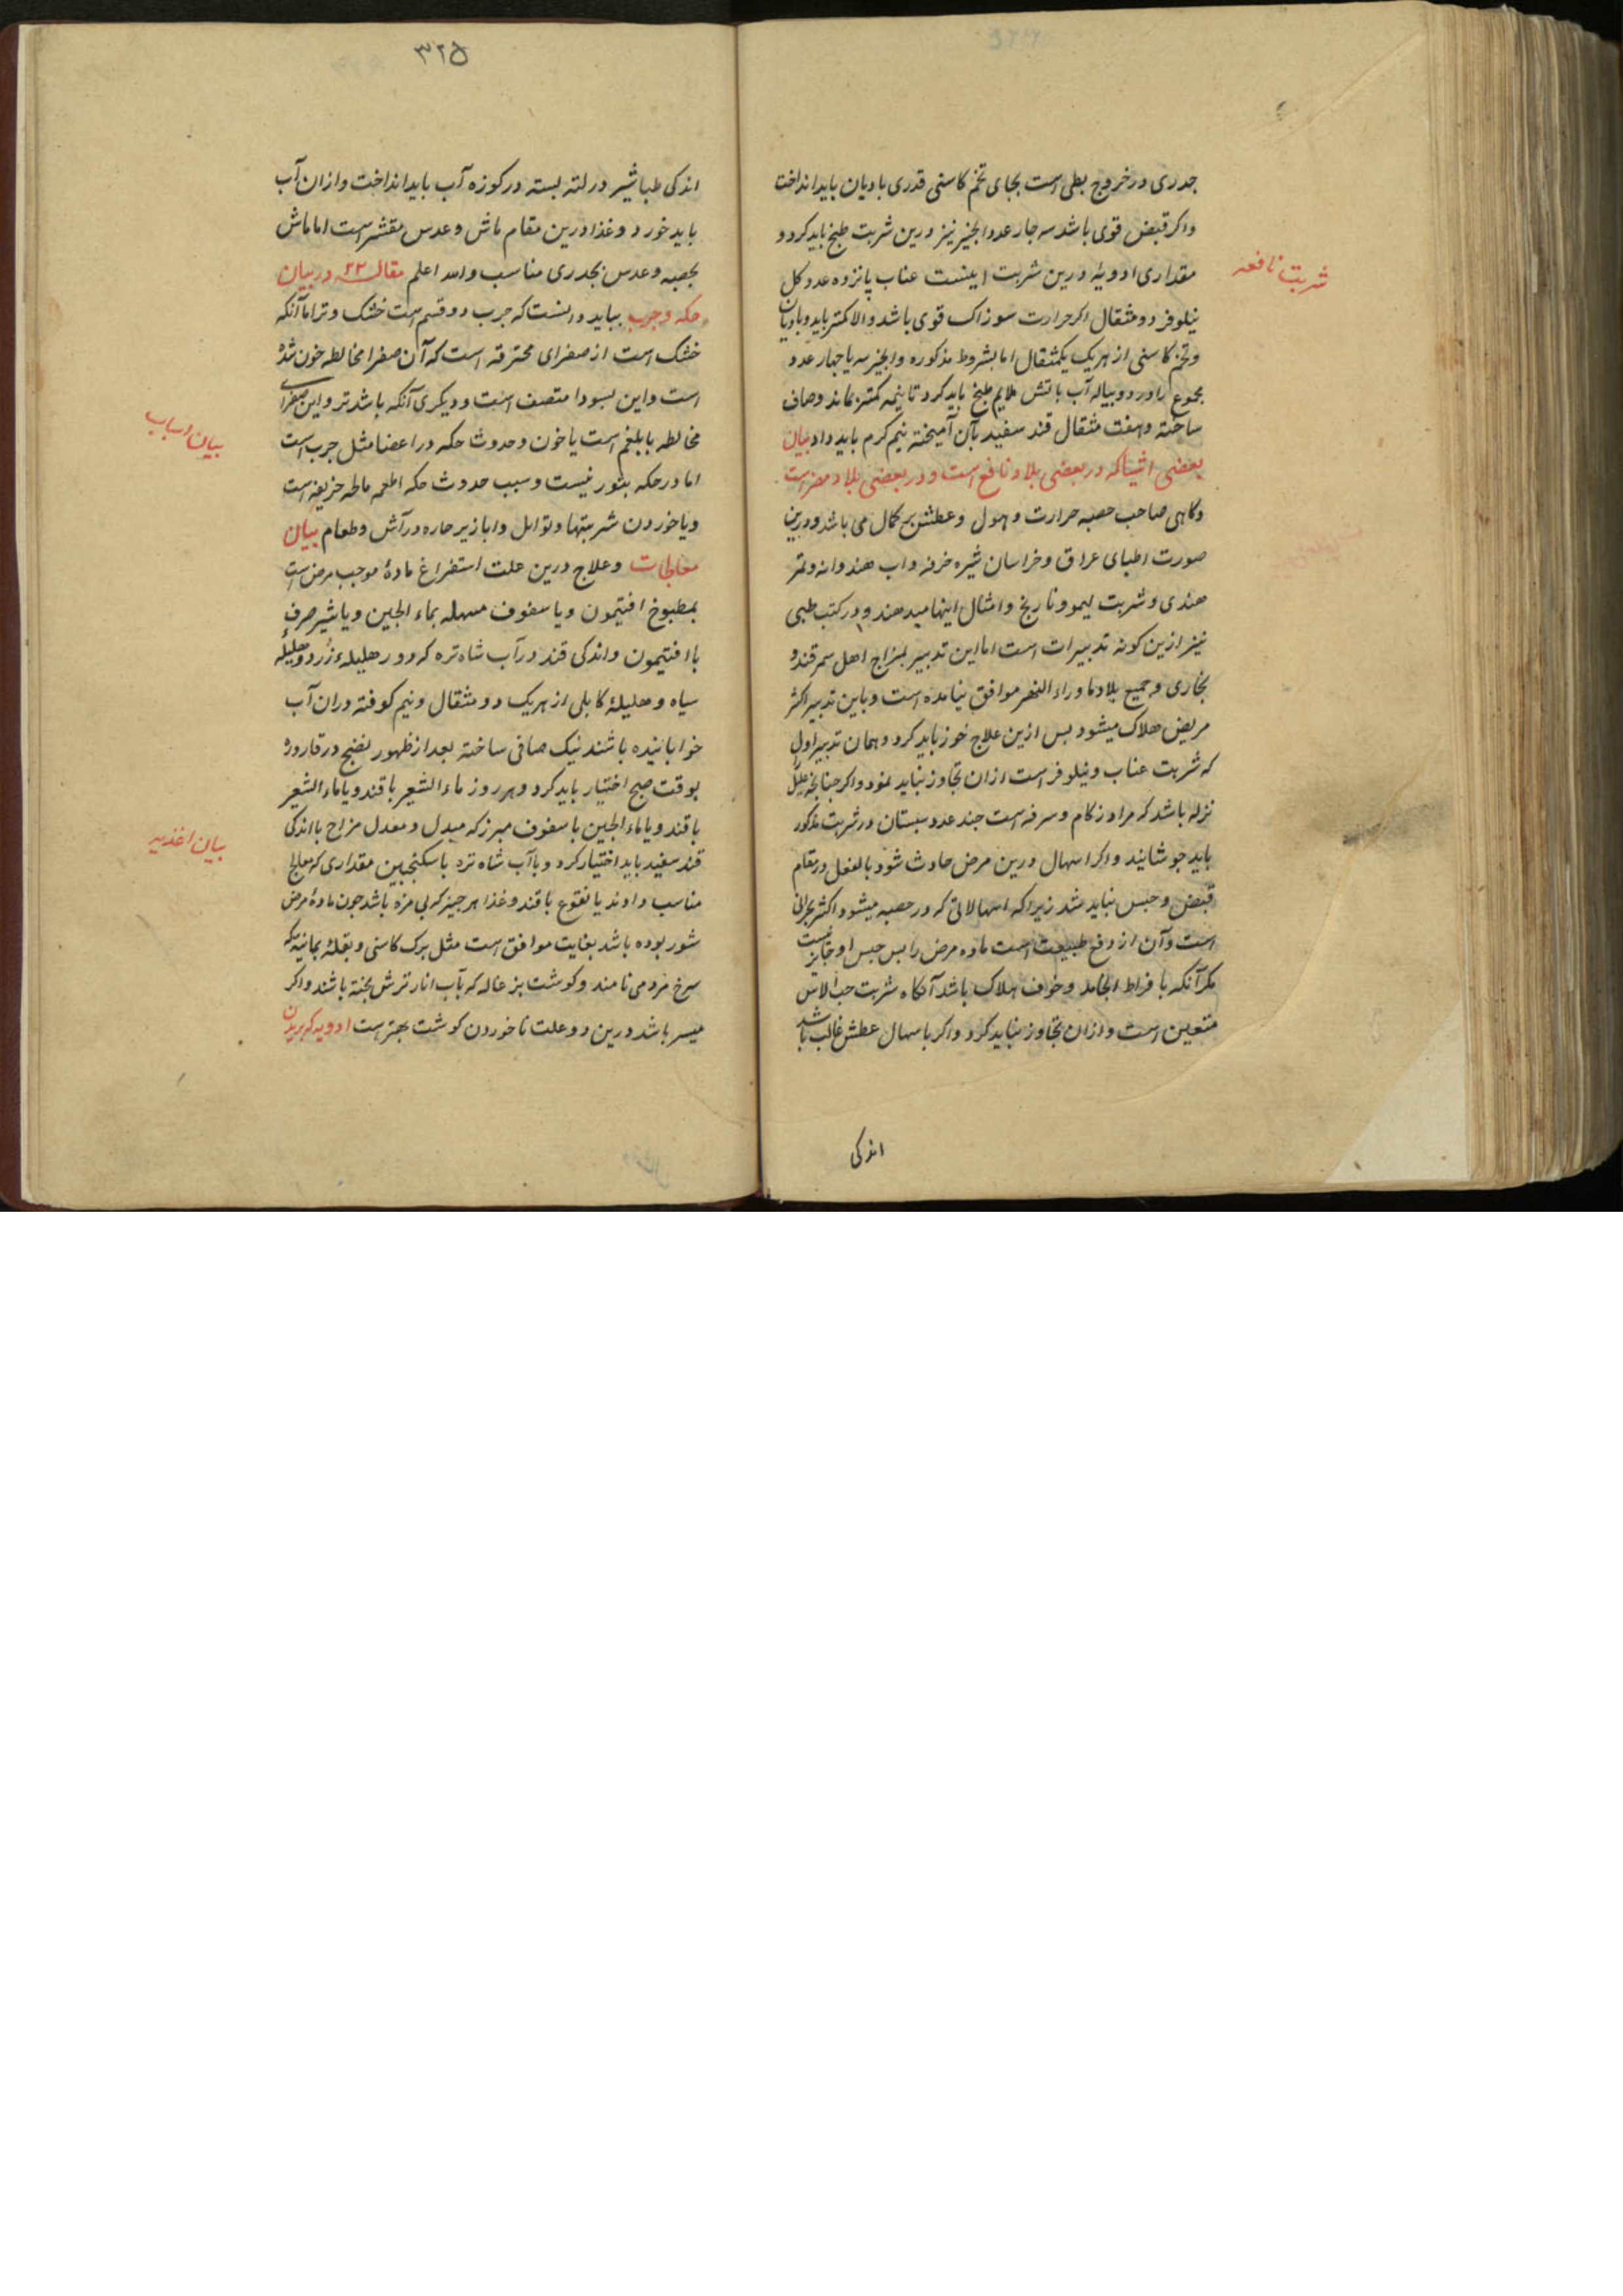 جدری در خروج بطی است بجای تخم کاسنی قدری بادیان باید انداخت
واکر قبض قوی باشد سه جار عدد انجیر نیز درین شربت طبخ باید کرد و
شربت نافعه
مقداری ادویهٔ درین شربت اینست عناب پانزده عدد کل
نیلوفر دو مثقال اکر حرارت سوزاک قوی باشد والا کمتر باید و بادیان
وتخم کاسنی از هریک یکمثقال اما بشروط مذکوره وانجیر سه یا جهار عدد
مجموع را در دو پیاله آب باتش ملایم طبخ باید کرد تا نیمه کمتر بماند وصاف
ساخته وهفت مثقال قند سفید بآن آمیخته نیم کرم باید داد بیان
بعضی اشیاکه در بعضی بلاد نافع است و در بعضی بلاد مضر است
وکاهی صاحب حصبه حرارت وهول وعطش بر کمال می باشد ودرین
صورت اطبای عراق وخراسان شیره خرفه واب هندوانه وتمر
هندی وشربت لیمو ونارنج وامثال اینها میدهند ودر کتب طبی
نیز ازین کونه تدبیرات است اما این تدبیر بمزاج اهل سمرقند و
بخاری وجمیع بلاد ما وراء النهر موافق نیامده است وباین تدبیر اکثر
مریض هلاک میشود بس ازین علاج حذر باید کرد وهمان تدبیر اول
که شربت عناب ونیلوفر است ازان تجاوز نباید نمود واکر جنانجه علیل
نزله باشد که مراد زکام وسرفه است جند عدد سبستان در شربت مذکور
باید جوشانید واکر اسهال درین مرض حادث شود بالفعل در مقام
قبض وحبس نباید شد زیرا که اسهالاتی که در حصبه میشود اکثر بحرانی
است وآن از دفع طبیعت است ماده مرض را بس حبس او جایز نیست
مکر آنکه بافراط انجامد وخوف هلاک باشد آنکاه شربت حب الاس
متعین است وازان تجاوز نباید کرد واکر باسهال عطش غالب باشد
اندکی
۳۲۵
اندکی طباشیر در لته بسته در کوزه آب باید انداخت وازان آب
باید خورد وغذا درین مقام ماش وعدس مقشر است اما ماش
بحصبه وعدس بجدری مناسب والله اعلم مقاله ۲۳ در بیان
حکه وجرب بباید دانست که جرب دو قسم است خشک وتر اما آنکه
خشک است از صفرای محترقه است که آن صفرا مخالطه خون شده
است واین بسودا متصف است ودیکری آنکه باشد تر واین صفرا
بیان اسباب
مخالطه با بلغم است یا خون وحدوث حکه در اعضا مثل جرب است
اما در حکه بثور نیست وسبب حدوث حکه اطعمه مالحه حریفه است
ویا خوردن شربتها وتوابل وابازیر حاره در آش وطعام بیان
معالجات وعلاج درین علت استفراغ مادهٔ موجب مرض است
بمطبوخ افتیمون ویا سفوف مسهله بماء الجبن ویا شیر صرف
با افتیمون واندکی قند در آب شاه تره کرد ور هلیلهٔ زرد وهلیلهٔ
سیاه وهلیلهٔ کابلی از هریک دو مثقال ونیم کوفته دران آب
خوابانیده باشند نیک صافی ساخته بعد از ظهور نضج در قاروره
بوقت صبح اختیار باید کرد وهر روز ماء الشعیر با قند ویا ماء الشعیر
بیان اغذیه
با قند ویا ماء الجبن با سفوف مبرز که مبدل ومعدل مزاج با اندکی
قند سفید باید اختیار کرد وبا آب شاه تره با سکنجبین مقداری که معالج
مناسب داند یا نقوع با قند وغذا هر جیز که بی مزه باشد جون مادهٔ مرض
شور بوده باشد بغایت موافق است مثل برک کاسنی وبقلهٔ یمانیه که
سرخ مرد می نامند وکوشت بزغاله که بآب انار ترش پخته باشند واکر
میسر باشد درین دو علت ناخوردن کوشت بهتر است ادویه که بریدن